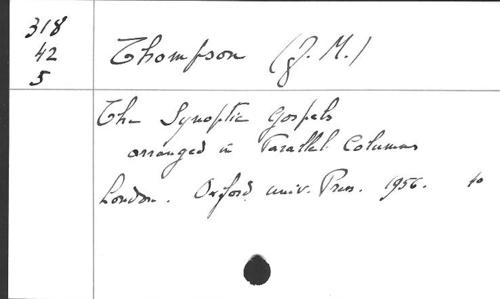 318
42
5
Thompson (J. M.)
The Synoptic Gospels
arranged in Parallel Columns
London. Oxford univ. Press. 1956. to